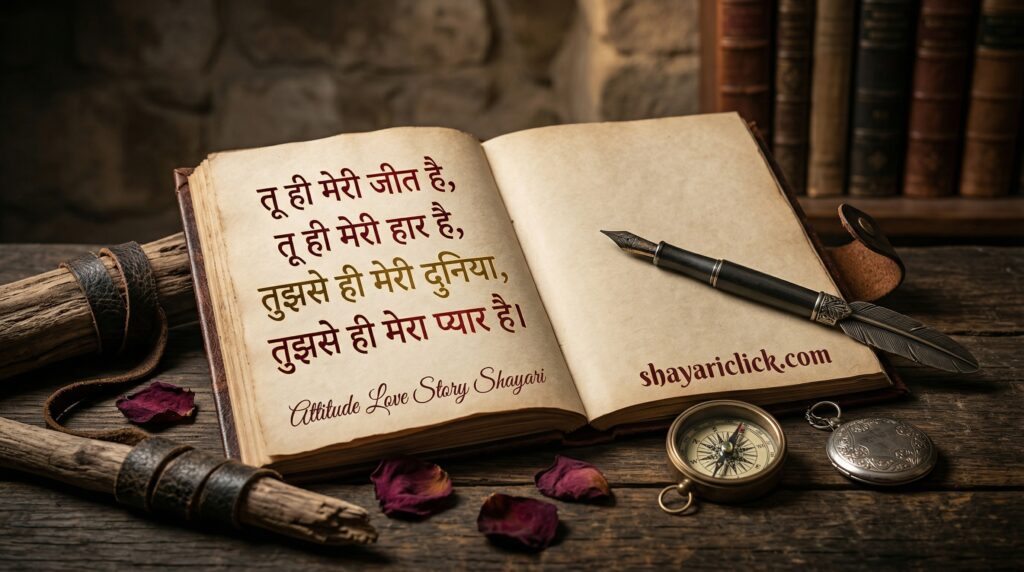 तू ही मेरी जीत है,
तू ही मेरी हार है,
तुझसे ही मेरी दुनिया,
तुझसे ही मेरा प्यार है।
Attitude Love Story Shayari
shayariclick.com